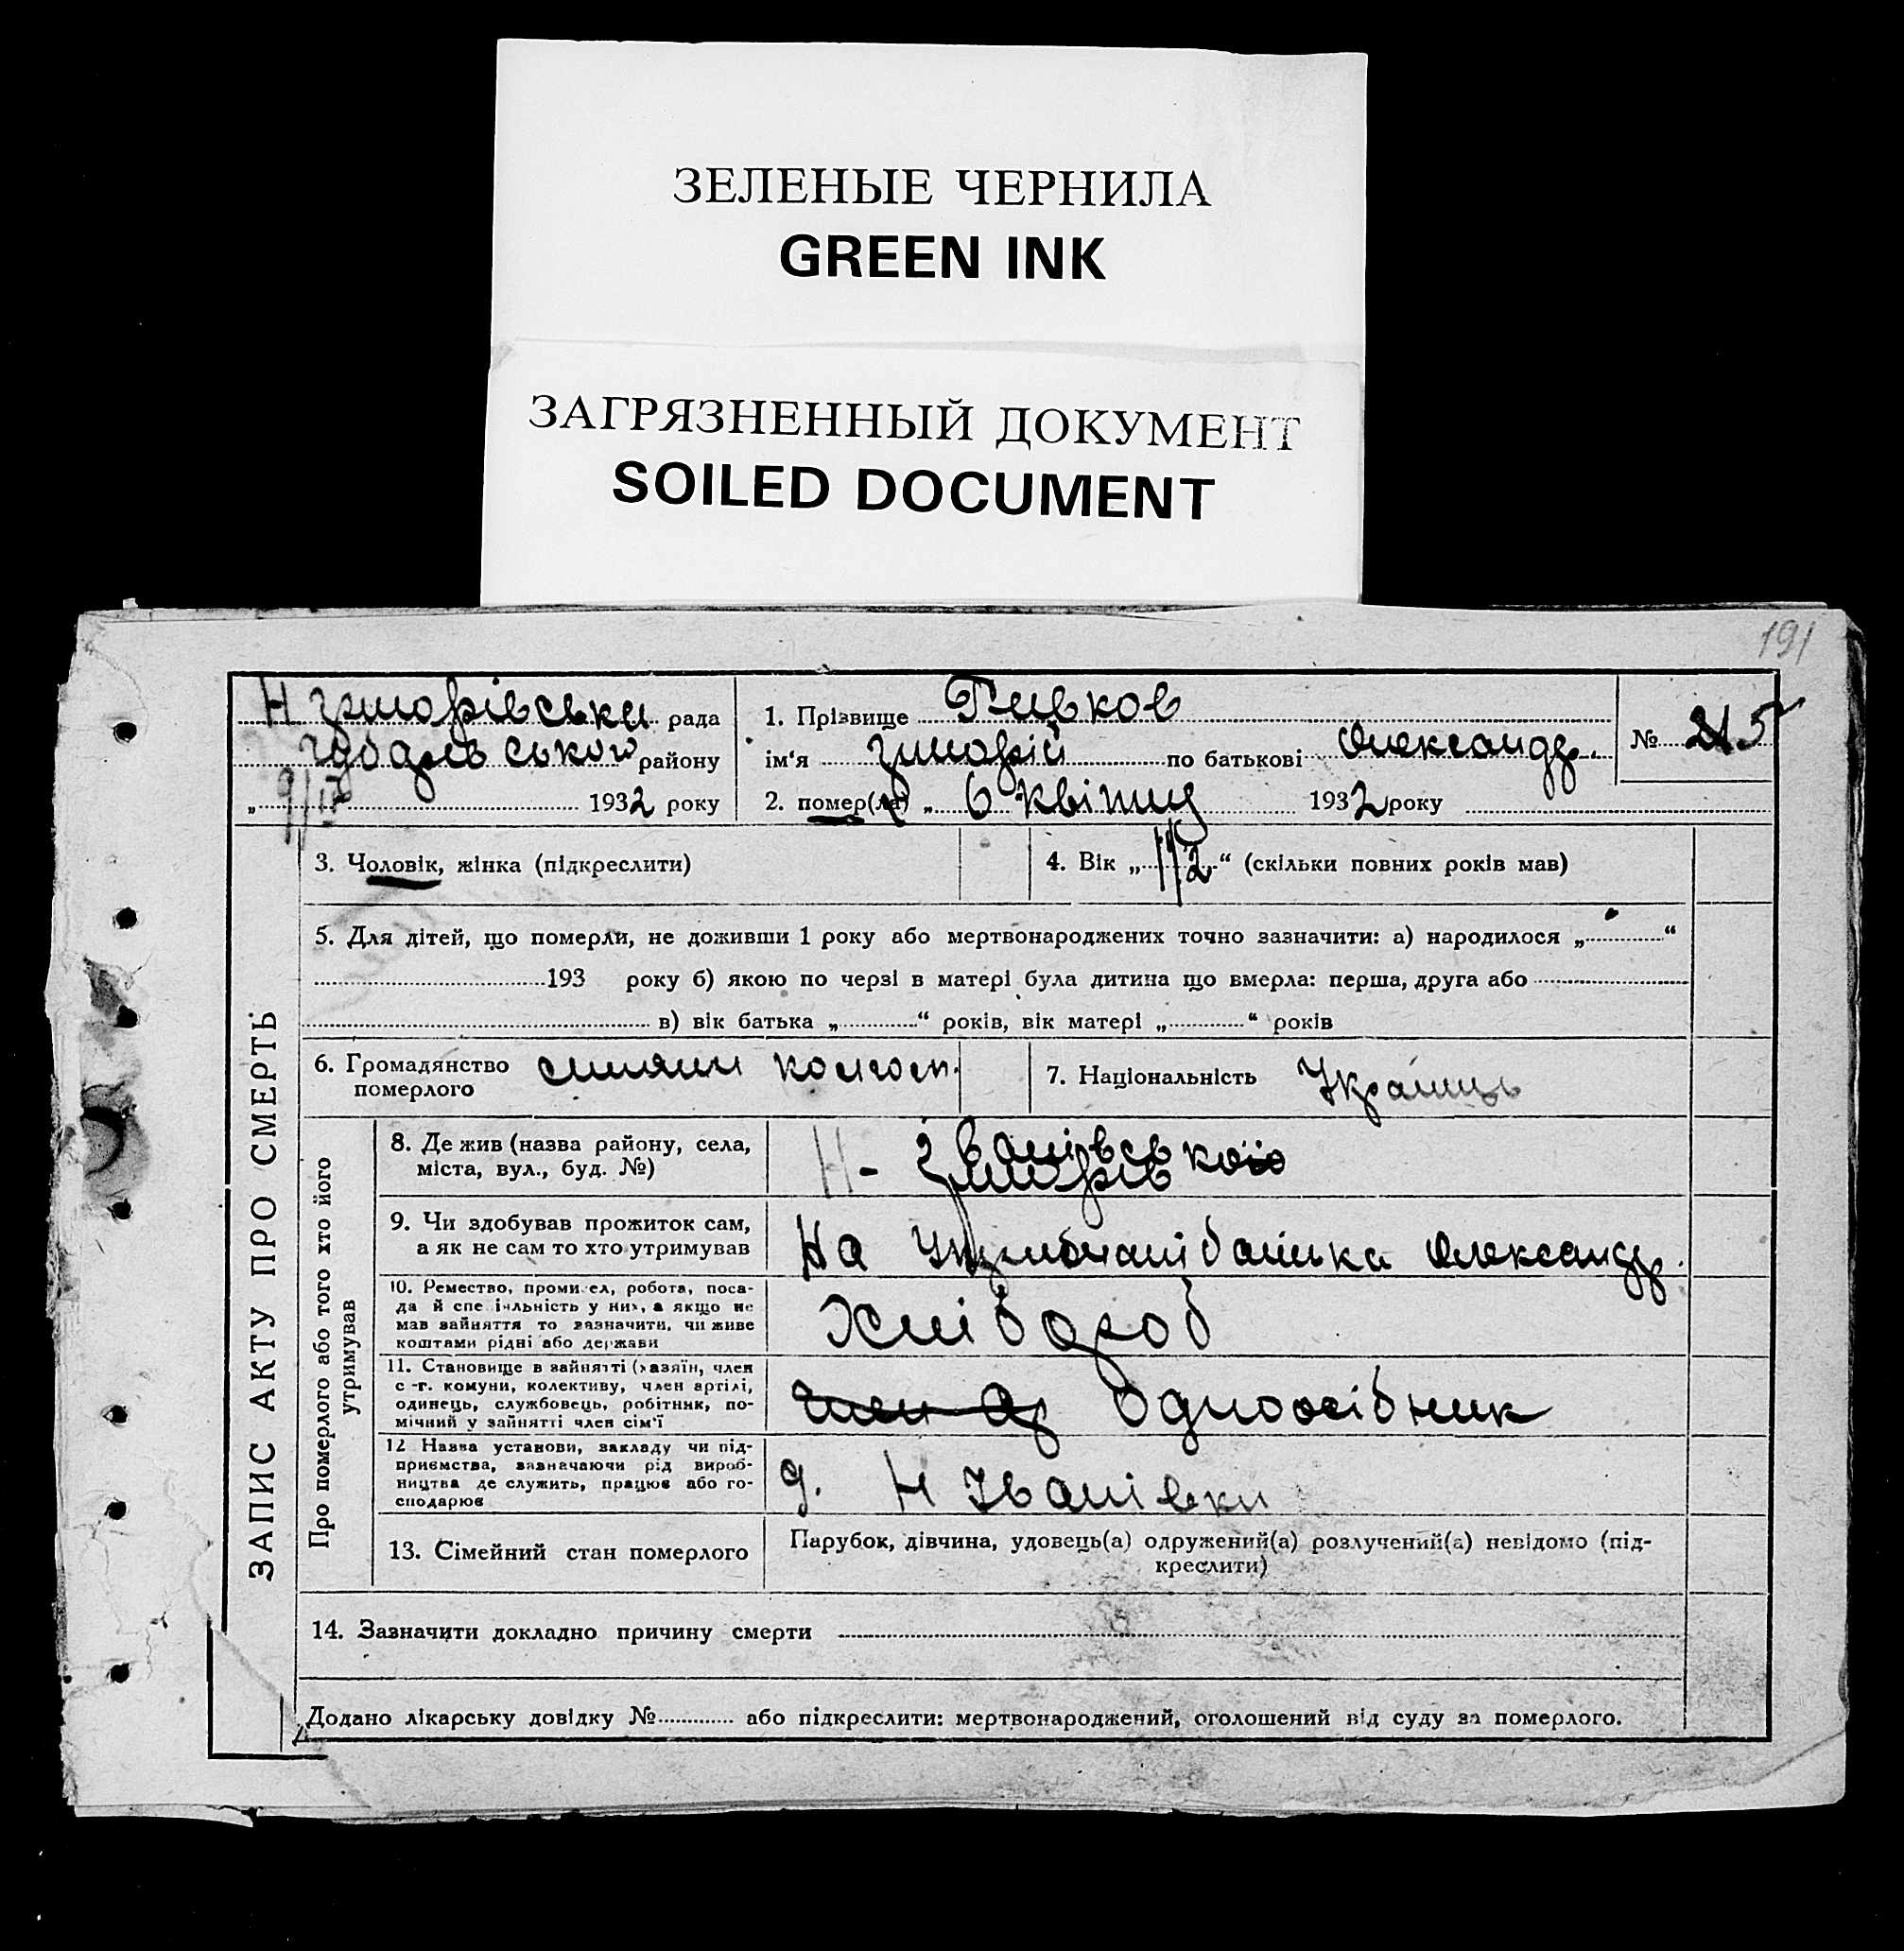 ЗЕЛЕНЫЕ ЧЕРНИЛА
GREEN INK
ЗАГРЯЗНЕННЫЙ ДОКУМЕНТ
SOILED DOCUMENT
191
Н рада
району
„ 9/IV 1932 року
1. Прізвище
ім'я по батькові Олександр.
2. помер(ла) „ 6 квітня 1932 року
№ 215
ЗАПИС АКТУ ПРО СМЕРТЬ
3. Чоловік, жінка (підкреслити)
4. Вік „ 1 1/2 “ (скільки повних років мав)
5. Для дітей, що померли, не доживши 1 року або мертвонароджених точно зазначити: а) народилося „ “
193 року б) якою по черзі в матері була дитина що вмерла: перша, друга або
в) вік батька „ “ років, вік матері „ “ років
6. Громадянство
померлого
7. Національність Українць
Про померлого або того хто його
утримував
8. Де жив (назва району, села,
міста, вул., буд. №)
Н-
9. Чи здобував прожиток сам,
а як не сам то хто утримував
На батька Олександр.
10. Ремество, промисел, робота, поса-
да й спеціяльність у них, а якщо не
мав зайняття то зазначити, чи живе
коштами рідні або держави
Хлібороб
11. Становище в зайнятті (хазяїн, член
с.-г. комуни, колективу, член артілі,
одинець, службовець, робітник, по-
мічний у зайнятті член сім'ї
член Одноосібник
12 Назва установи, закладу чи під-
приємства, зазначаючи рід вироб-
ництва де служить, працює або го-
сподарює
д. Н Іванівки
13. Сімейний стан померлого
Парубок, дівчина, удовець(а) одружений(а) розлучений(а) невідомо (під-
креслити)
14. Зазначити докладно причину смерти
Додано лікарську довідку № або підкреслити: мертвонароджений, оголошений від суду за померлого.